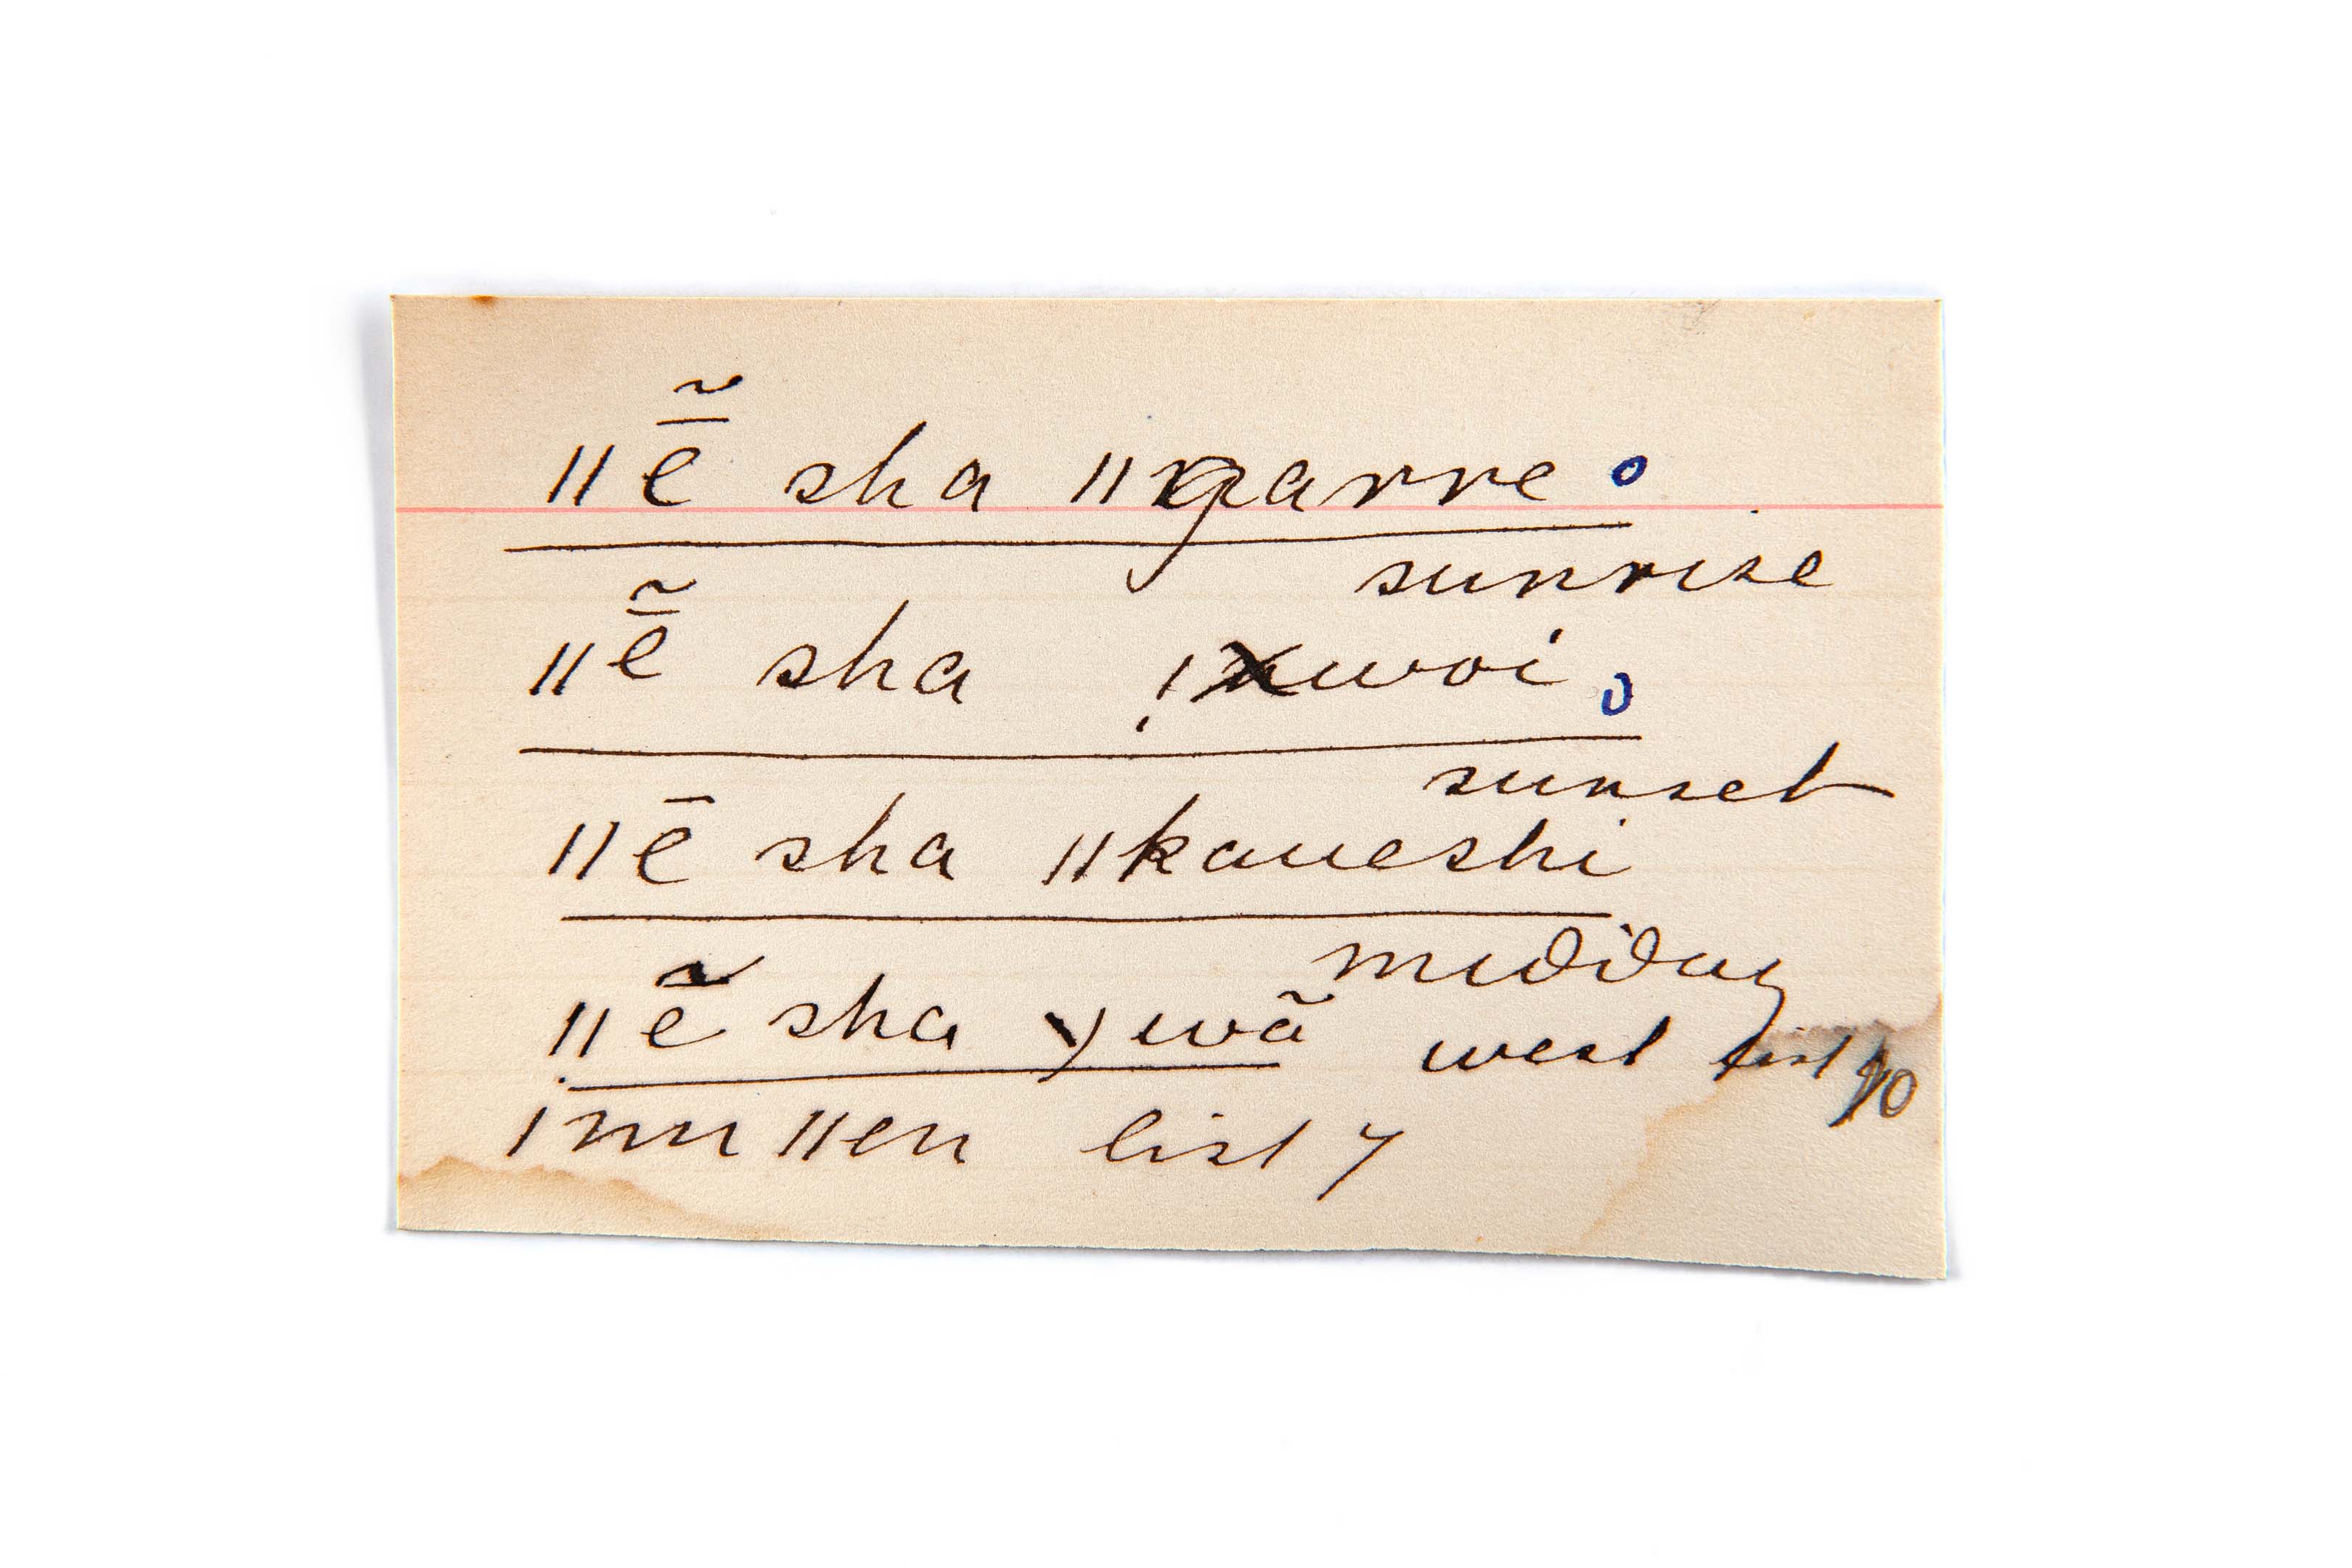 ǁē̃ sha ǁgarre
sunrise
ǁē̃ sha !xwoi
sunset
ǁē sha ǁkaueshi
midday
ǁē̃ sha wã west list 10
ǀnu ǁen list 7